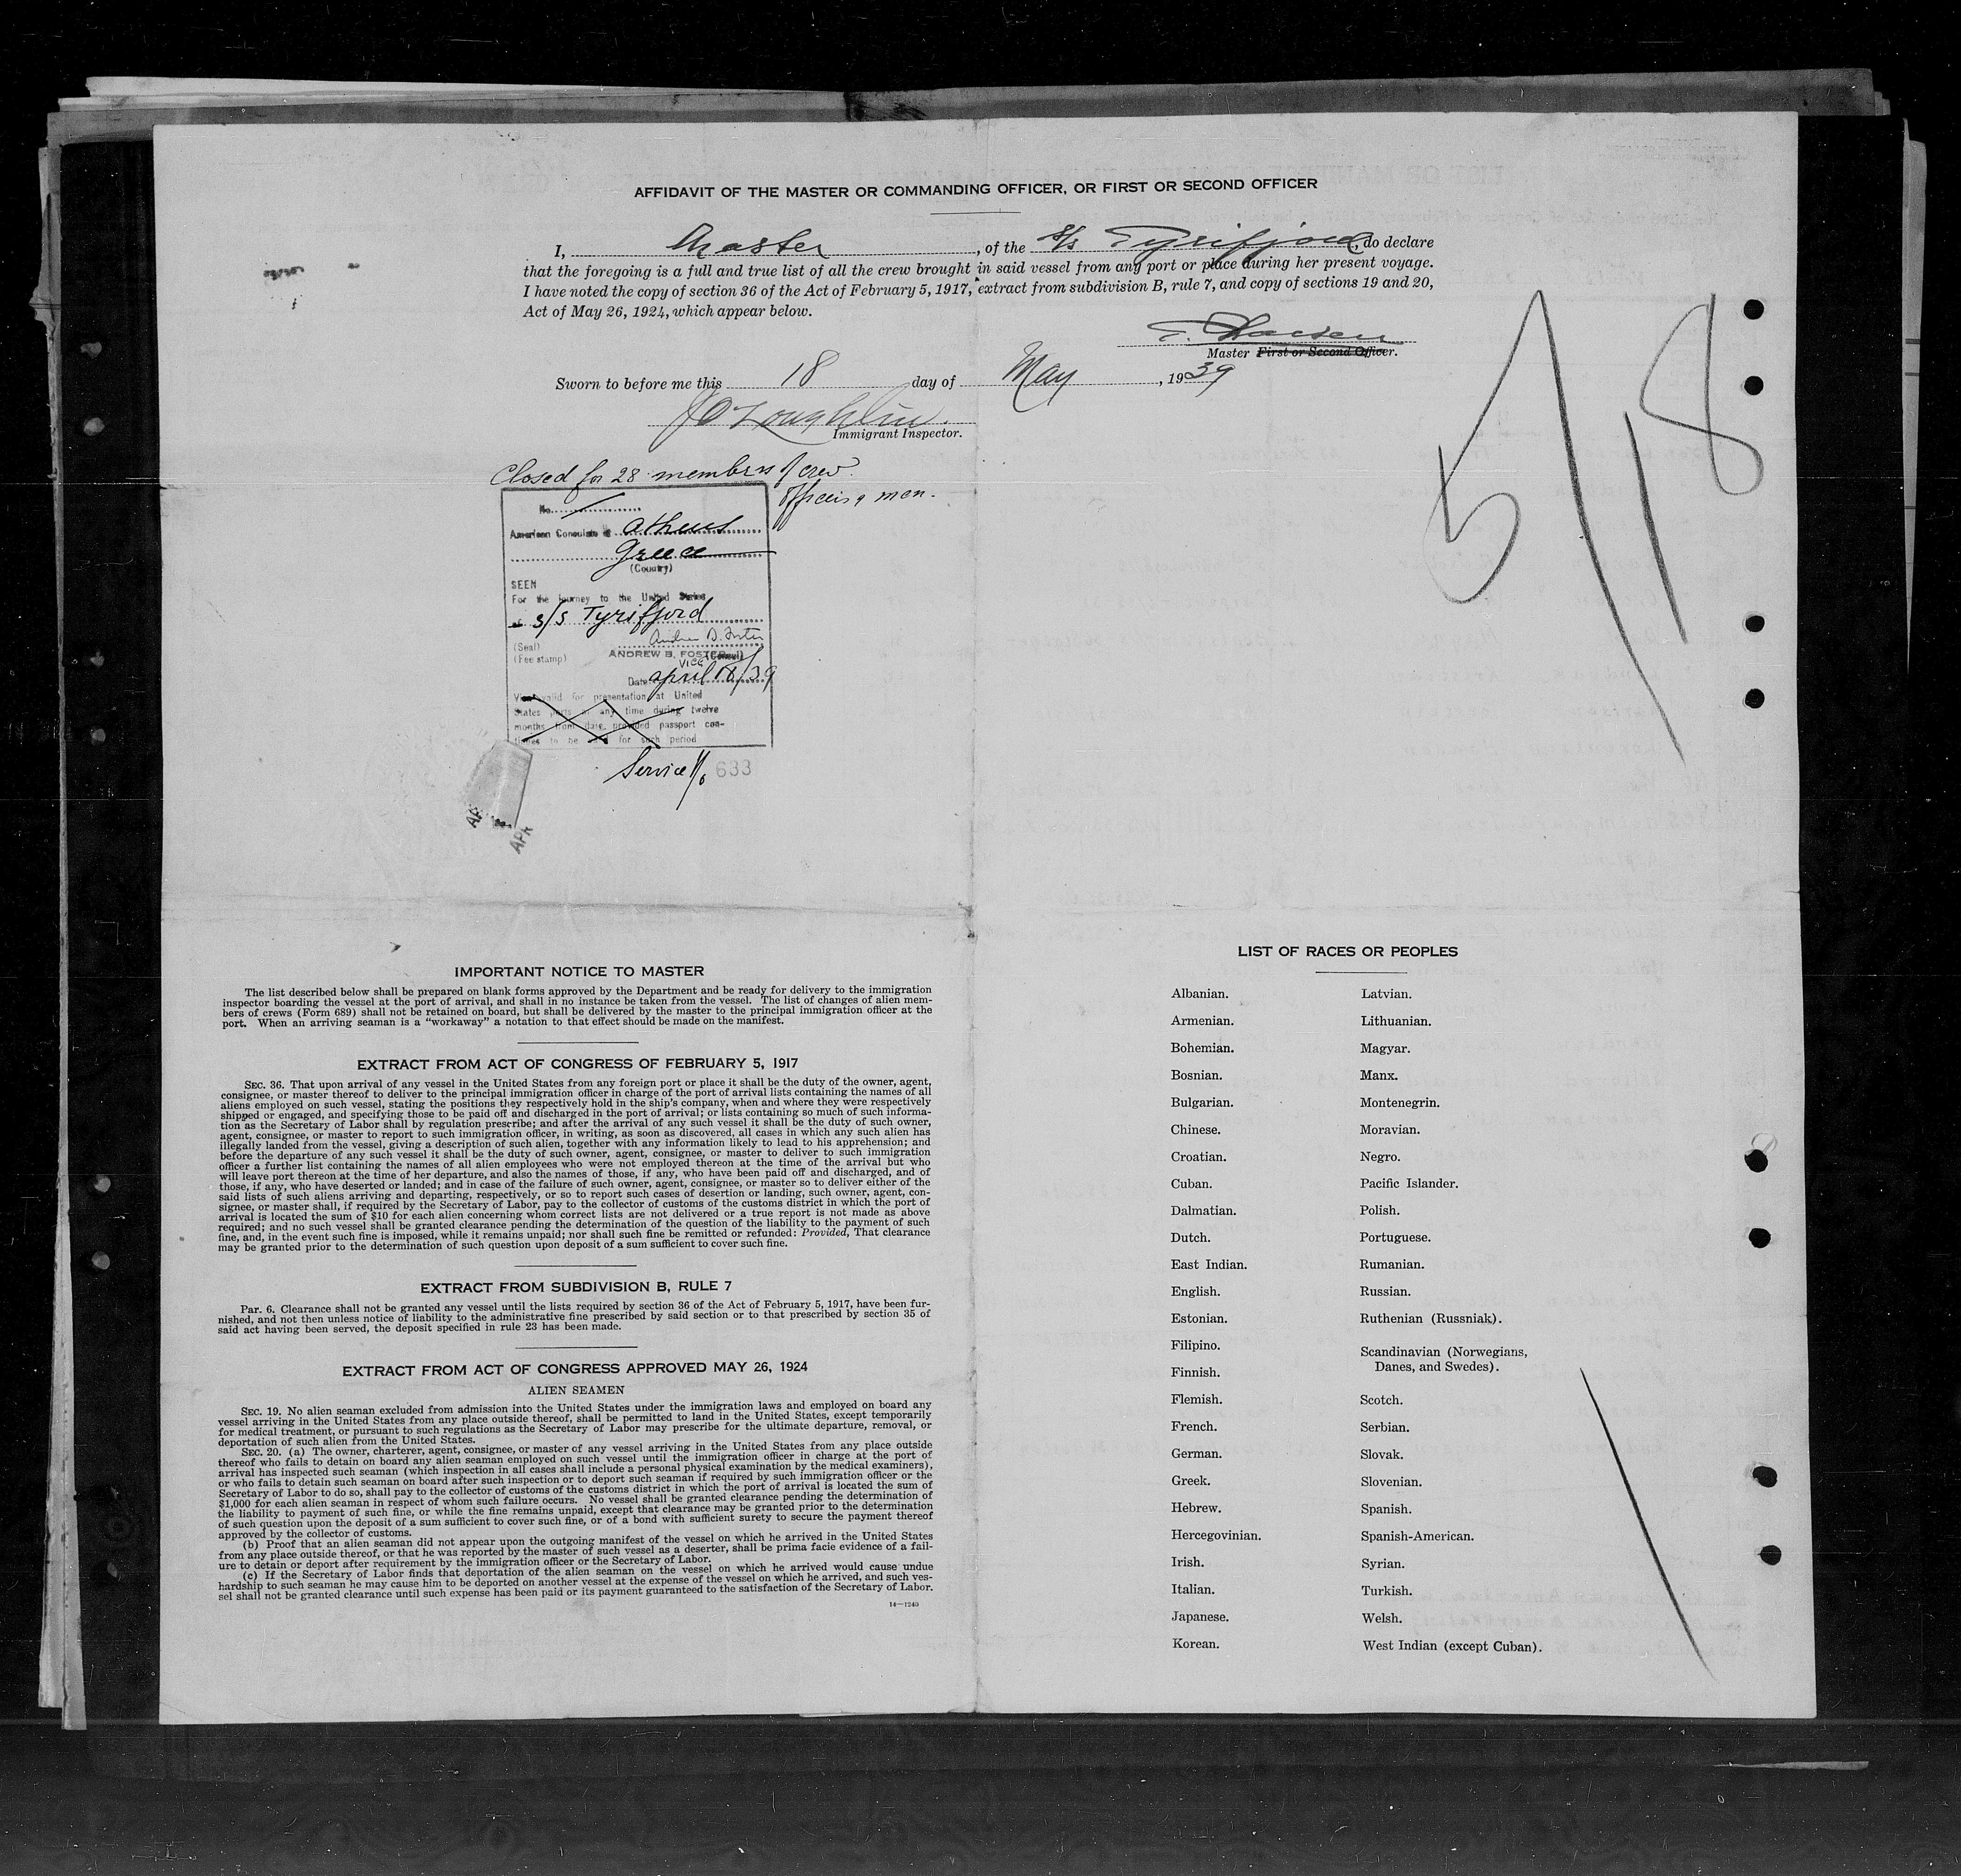 AFFIDAVIT OF THE MASTER OR COMMANDING OFFICER, OR FIRST OR SECOND OFFICER
I, Master, of the S/S Tyrifjord, do declare
that the foregoing is a full and true list of all the crew brought in said vessel from any port or place during her present voyage.
I have noted the copy of section 36 of the Act of February 5, 1917, extract from subdivision B, rule 7, and copy of sections 19 and 20,
Act of May 26, 1924, which appear below.
Master First or Second Officer.
Sworn to before me this 18 day of May, 1939
J O'Loughlin
Immigrant Inspector.
Closed for 28 members of crew
officers & men.
No.
American Consulate Athens
Greece
(Country)
SEEN
For the journey to the United States
S/S Tyrifjord
(Seal)
(Fee stamp) ANDREW B. FOSTER (Consul)
VICE
Date April 18/39
Visa valid for presentation at United
States ports at any time during twelve
months from date, provided passport con-
tinues to be valid for such period
Service No 633
5/18
IMPORTANT NOTICE TO MASTER
The list described below shall be prepared on blank forms approved by the Department and be ready for delivery to the immigration
inspector boarding the vessel at the port of arrival, and shall in no instance be taken from the vessel. The list of changes of alien mem-
bers of crews (Form 689) shall not be retained on board, but shall be delivered by the master to the principal immigration officer at the
port. When an arriving seaman is a "workaway" a notation to that effect should be made on the manifest.
EXTRACT FROM ACT OF CONGRESS OF FEBRUARY 5, 1917
SEC. 36. That upon arrival of any vessel in the United States from any foreign port or place it shall be the duty of the owner, agent,
consignee, or master thereof to deliver to the principal immigration officer in charge of the port of arrival lists containing the names of all
aliens employed on such vessel, stating the positions they respectively hold in the ship's company, when and where they were respectively
shipped or engaged, and specifying those to be paid off and discharged in the port of arrival; or lists containing so much of such informa-
tion as the Secretary of Labor shall by regulation prescribe; and after the arrival of any such vessel it shall be the duty of such owner,
agent, consignee, or master to report to such immigration officer, in writing, as soon as discovered, all cases in which any such alien has
illegally landed from the vessel, giving a description of such alien, together with any information likely to lead to his apprehension; and
before the departure of any such vessel it shall be the duty of such owner, agent, consignee, or master to deliver to such immigration
officer a further list containing the names of all alien employees who were not employed thereon at the time of the arrival but who
will leave port thereon at the time of her departure, and also the names of those, if any, who have been paid off and discharged, and of
those, if any, who have deserted or landed; and in case of the failure of such owner, agent, consignee, or master so to deliver either of the
said lists of such aliens arriving and departing, respectively, or so to report such cases of desertion or landing, such owner, agent, con-
signee, or master shall, if required by the Secretary of Labor, pay to the collector of customs of the customs district in which the port of
arrival is located the sum of $10 for each alien concerning whom correct lists are not delivered or a true report is not made as above
required; and no such vessel shall be granted clearance pending the determination of the question of the liability to the payment of such
fine, and, in the event such fine is imposed, while it remains unpaid; nor shall such fine be remitted or refunded: Provided, That clearance
may be granted prior to the determination of such question upon deposit of a sum sufficient to cover such fine.
EXTRACT FROM SUBDIVISION B, RULE 7
Par. 6. Clearance shall not be granted any vessel until the lists required by section 36 of the Act of February 5, 1917, have been fur-
nished, and not then unless notice of liability to the administrative fine prescribed by said section or to that prescribed by section 35 of
said act having been served, the deposit specified in rule 23 has been made.
EXTRACT FROM ACT OF CONGRESS APPROVED MAY 26, 1924
ALIEN SEAMEN
SEC. 19. No alien seaman excluded from admission into the United States under the immigration laws and employed on board any
vessel arriving in the United States from any place outside thereof, shall be permitted to land in the United States, except temporarily
for medical treatment, or pursuant to such regulations as the Secretary of Labor may prescribe for the ultimate departure, removal, or
deportation of such alien from the United States.
SEC. 20. (a) The owner, charterer, agent, consignee, or master of any vessel arriving in the United States from any place outside
thereof who fails to detain on board any alien seaman employed on such vessel until the immigration officer in charge at the port of
arrival has inspected such seaman (which inspection in all cases shall include a personal physical examination by the medical examiners),
or who fails to detain such seaman on board after such inspection or to deport such seaman if required by such immigration officer or the
Secretary of Labor to do so, shall pay to the collector of customs of the customs district in which the port of arrival is located the sum of
$1,000 for each alien seaman in respect of whom such failure occurs. No vessel shall be granted clearance pending the determination of
the liability to payment of such fine, or while the fine remains unpaid, except that clearance may be granted prior to the determination
of such question upon the deposit of a sum sufficient to cover such fine, or of a bond with sufficient surety to secure the payment thereof
approved by the collector of customs.
(b) Proof that an alien seaman did not appear upon the outgoing manifest of the vessel on which he arrived in the United States
from any place outside thereof, or that he was reported by the master of such vessel as a deserter, shall be prima facie evidence of a fail-
ure to detain or deport after requirement by the immigration officer or the Secretary of Labor.
(c) If the Secretary of Labor finds that deportation of the alien seaman on the vessel on which he arrived would cause undue
hardship to such seaman he may cause him to be deported on another vessel at the expense of the vessel on which he arrived, and such ves-
sel shall not be granted clearance until such expense has been paid or its payment guaranteed to the satisfaction of the Secretary of Labor.
14—1240
LIST OF RACES OR PEOPLES
Albanian.
Armenian.
Bohemian.
Bosnian.
Bulgarian.
Chinese.
Croatian.
Cuban.
Dalmatian.
Dutch.
East Indian.
English.
Estonian.
Filipino.
Finnish.
Flemish.
French.
German.
Greek.
Hebrew.
Hercegovinian.
Irish.
Italian.
Japanese.
Korean.
Latvian.
Lithuanian.
Magyar.
Manx.
Montenegrin.
Moravian.
Negro.
Pacific Islander.
Polish.
Portuguese.
Rumanian.
Russian.
Ruthenian (Russniak).
Scandinavian (Norwegians,
Danes, and Swedes).
Scotch.
Serbian.
Slovak.
Slovenian.
Spanish.
Spanish-American.
Syrian.
Turkish.
Welsh.
West Indian (except Cuban).